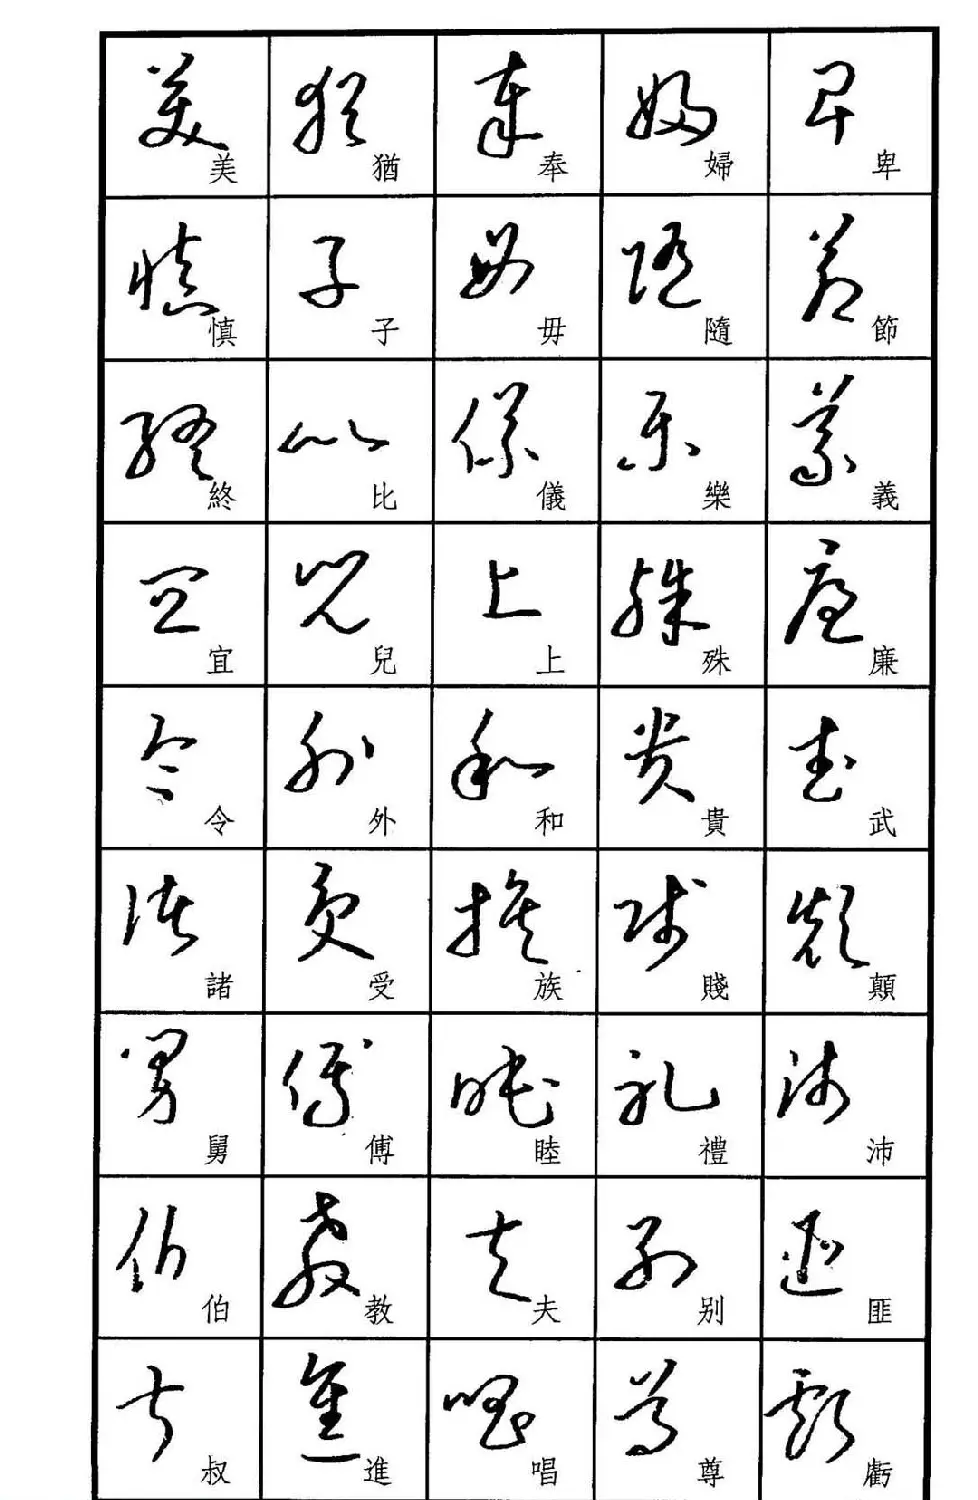 美慎終宜令諸舅伯叔
猶子比兒外受傅教進
奉毋儀上和族睦夫唱
婦隨樂殊貴賤禮别尊
卑節義廉武顛沛匪虧